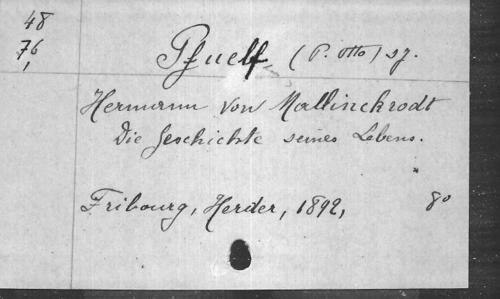 48
76,
Pfuelf, (P. Otto) sj.
Hermann von Mallinckrodt
Die Geschichte seines Lebens.
Fribourg, Herder, 1892, 8º